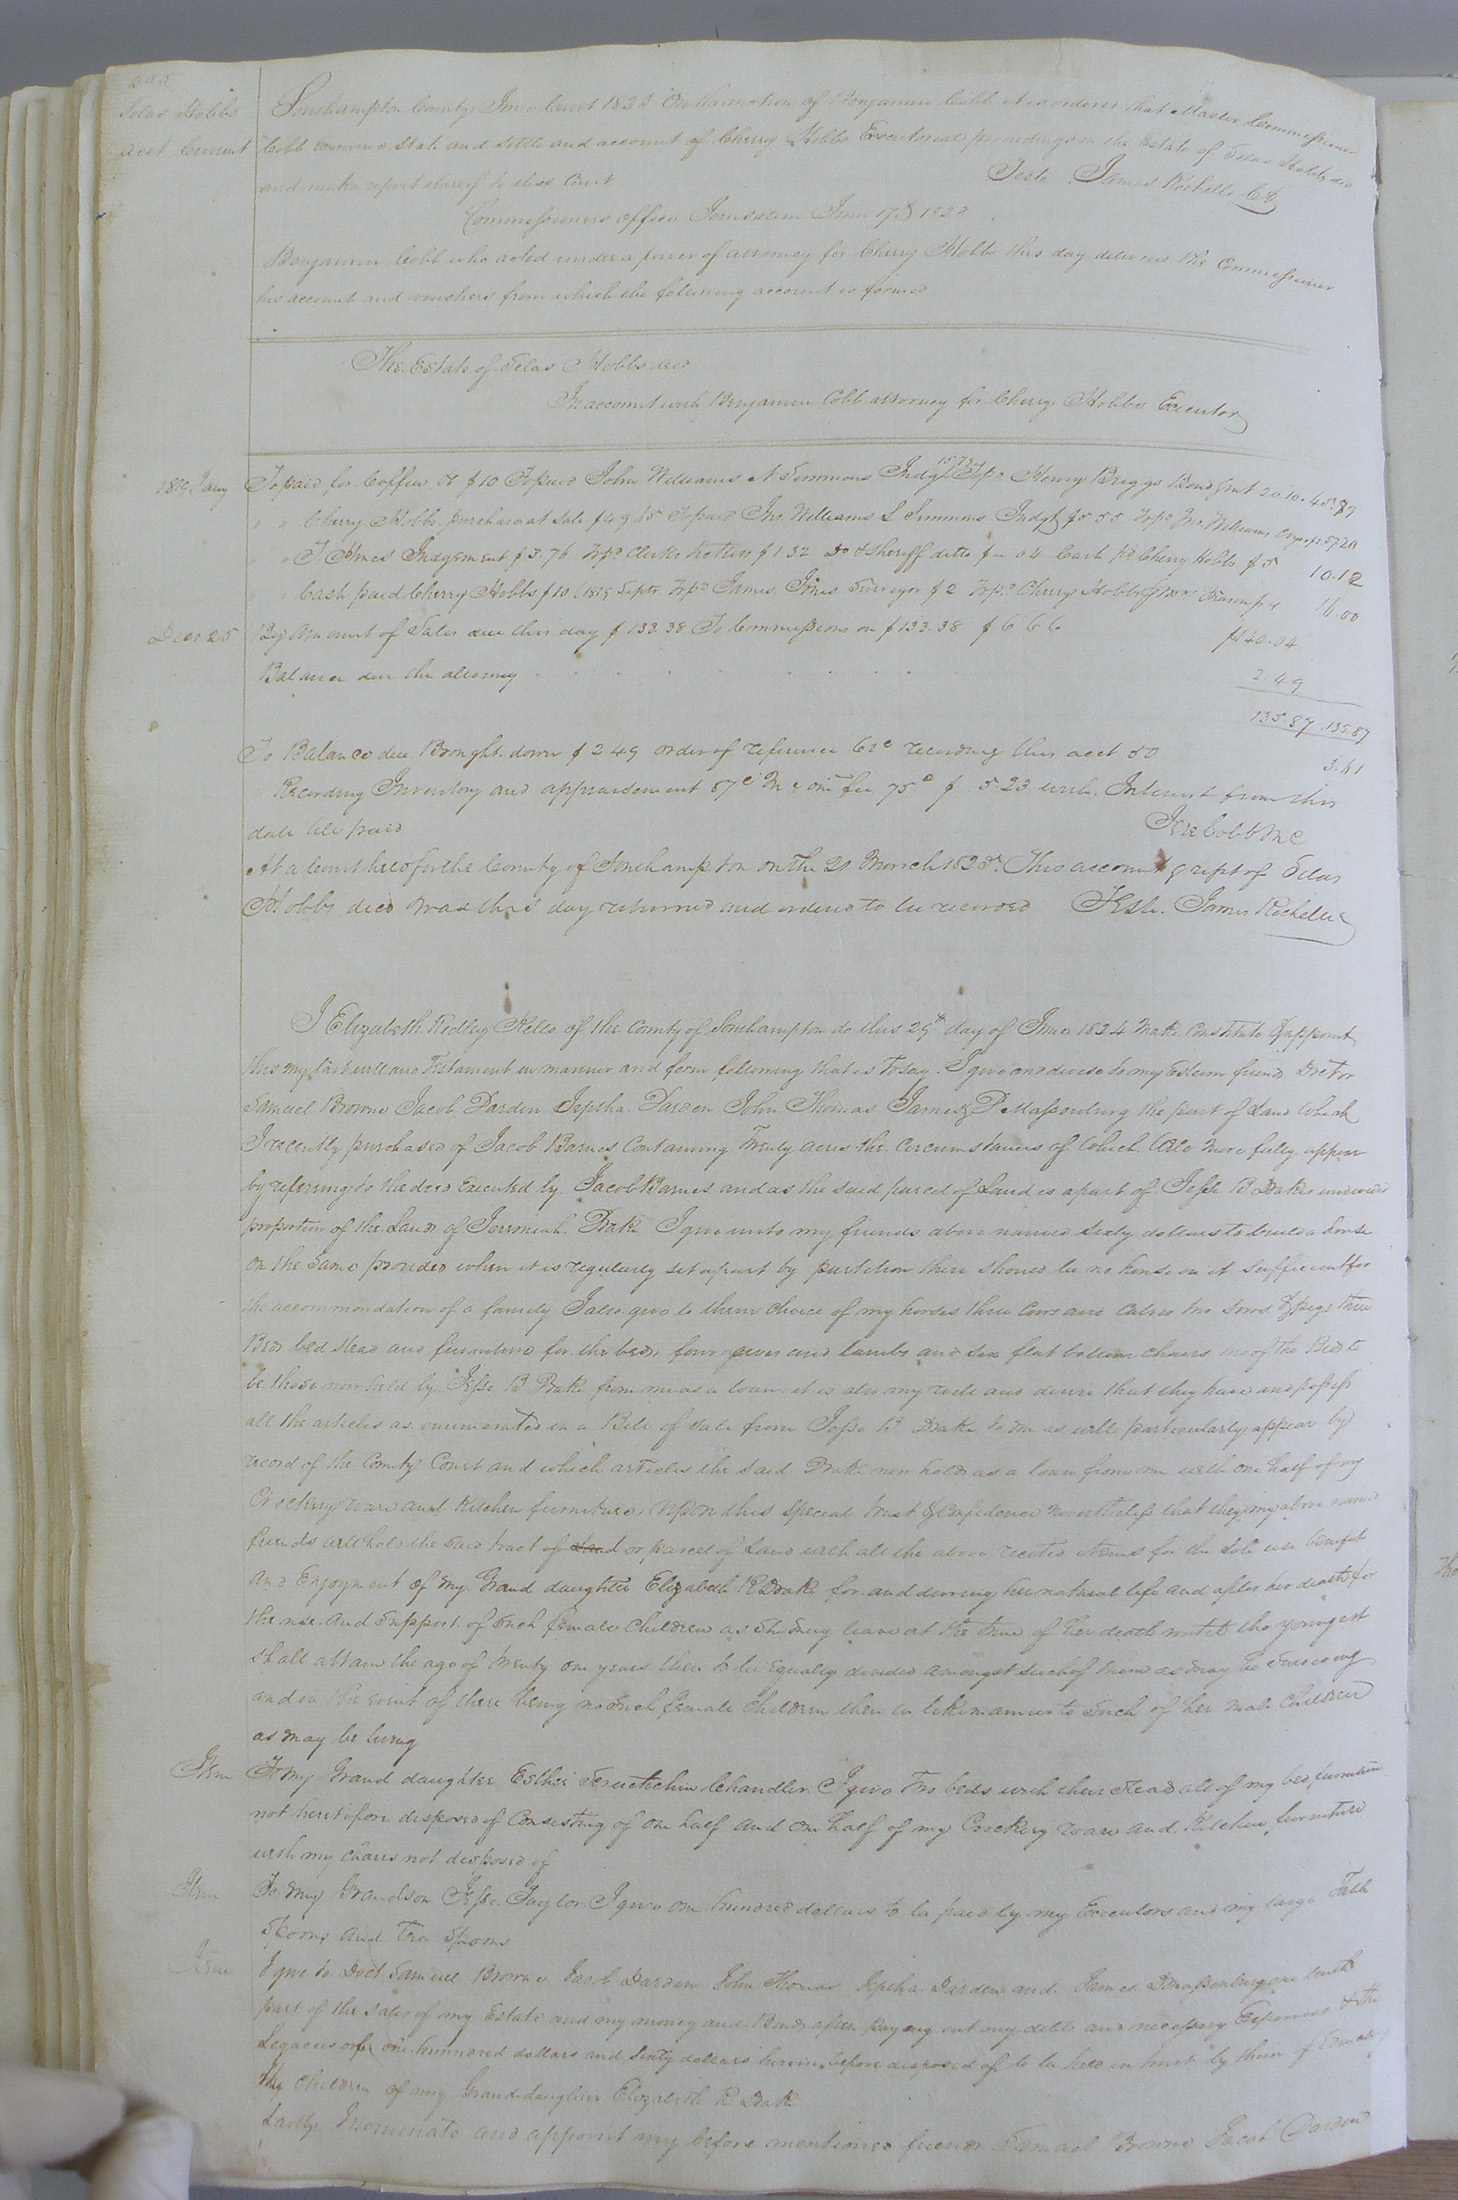 Silas Hobbs
Acct Current
Southampton County June Court 1823 On the motion of Benjamin Cobb it is ordered that Master Commissioner
Cobb examine state and settle and account of Cherry Hobbs Executorial proceedings on the Estate of Silas Hobbs decd
and make report thereof to this Court
Teste James Rochelle CC
Commissioners office Jerusalem June 17th 1823
Benjamin Cobb who acted under a power of attorney for Cherry Hobbs this day delivers the Commissioner
his account and vouchers from which the following account is formed
The Estate of Silas Hobbs decd
In account with Benjamin Cobb attorney for Cherry Hobbs Executor
1819 Jany To paid for Coffin &c $10 To paid John Williams N Simmons Judgt 15.79 To pd Henry Briggs Bond & int 20.10. 45.89
" " Cherry Hobbs purchase at sale $49.65 To paid Jno. Williams L Simmons Judgt $5.55 To pd Jno. Williams 57.20
" " Judgement $3.76 To pd Clerks tickets $1.32 Do & Sheriff ditto Cash pd Cherry Hobbs $5 10.12
" " Cash paid Cherry Hobbs $10 (1819 Septr To pd James Jones Surveyor $2 To pd Cherry Hobbs $4 16.00
Decr 25 By Amount of Sales due this day $133.38 To Commissions on $133.38 $6 66
Balance due the attorney 2.49
135.87 . 135.87
To Balance due Brought down $2.49 order of reference 62c recording this acct 50 3.61
Recording Inventory and appraisement 87c M Com fee 75c $5.23 with Interest from this
date till paid Jere Cobb MC
At a Court held for the County of Southampton on the 21 March 1825. This account & rept of Silas
Hobbs decd was this day returned and ordered to be recorded Teste. James Rochelle C
I Elizabeth Ridley Kello of the County of Southampton do this 29th day of June 1824 Make Constitute & appoint
this my last will and Testament in manner and form following that is To say. I give and devise to my Esteem friends Doctor
Samuel Browne Jacob Darden Jeptha Darden John Thomas James D Massenburg the part of Land which
I recently purchased of Jacob Barnes Containing Twenty acres the Circumstances of which will more fully appear
by refering to the deed Executed by Jacob Barnes and as the said parcel of Land is a part of Jesse B Drakes undivided
proportion of the Land of Jeremiah Drake I give unto my friends above named sixty dollars to build a house
on the Same provided when it is regularly set apart by partition there should be no house on it sufficient for
the accommodation of a family I also give to them choice of my horses three Cows and Calves two sows & pigs three
Beds bed stead and furniture for the beds, four ewes and lambs and six flat bottom chairs two of the Beds to
be those now held by Jesse B Drake from me as a loan it is also my will and desire that they have and possess
all the articles as enumerated in a Bill of sale from Jesse B Drake to me as will particularly appear by
record of the County Court and which articles the said Drake now holds as a loan from me with one half of my
Crockery ware and Kitchen furniture, Upon this special trust & Confidence nevertheless that they my above named
friends will hold the said tract of Land or parcel of Land with all the above recited items for the sole use benefit
and Enjoyment of my Grand daughter Elizabeth R Drake for and during her natural life and after her death for
the use and support of such female Children as She may leave at the time of her death until the youngest
shall attain the age of Twenty one years then to be Equally divided amongst such of them as may be surviving
and in the event of there being no such female Children then in like manner to such of her male Children
as may be living
Item To my Grand daughter Esther Chandler I give Two beds with their stead all of my bed furniture
not heretofore disposed of Consisting of one half and one half of my Crockery ware and Kitchen furniture
with my chairs not disposed of
Item To my Grandson Jesse Taylor I give one hundred dollars to be paid by my Executors and my large Table
Spoons and Tea Spoons
Item I give to Doct Samuel Browne Jacob Darden John Thomas Jeptha Darden and James D Massenburg one tenth
part of the sales of my Estate and my money and Bonds after paying out my debts and necessary Expenses & the
Legacies of one hundred dollars and Sixty dollars herein before disposed of to be held in trust by them of Educating
the Children of my Grand daughter Elizabeth R Drake
Lastly I nominate and appoint my before mentioned friends Samuel Browne Jacob Darden